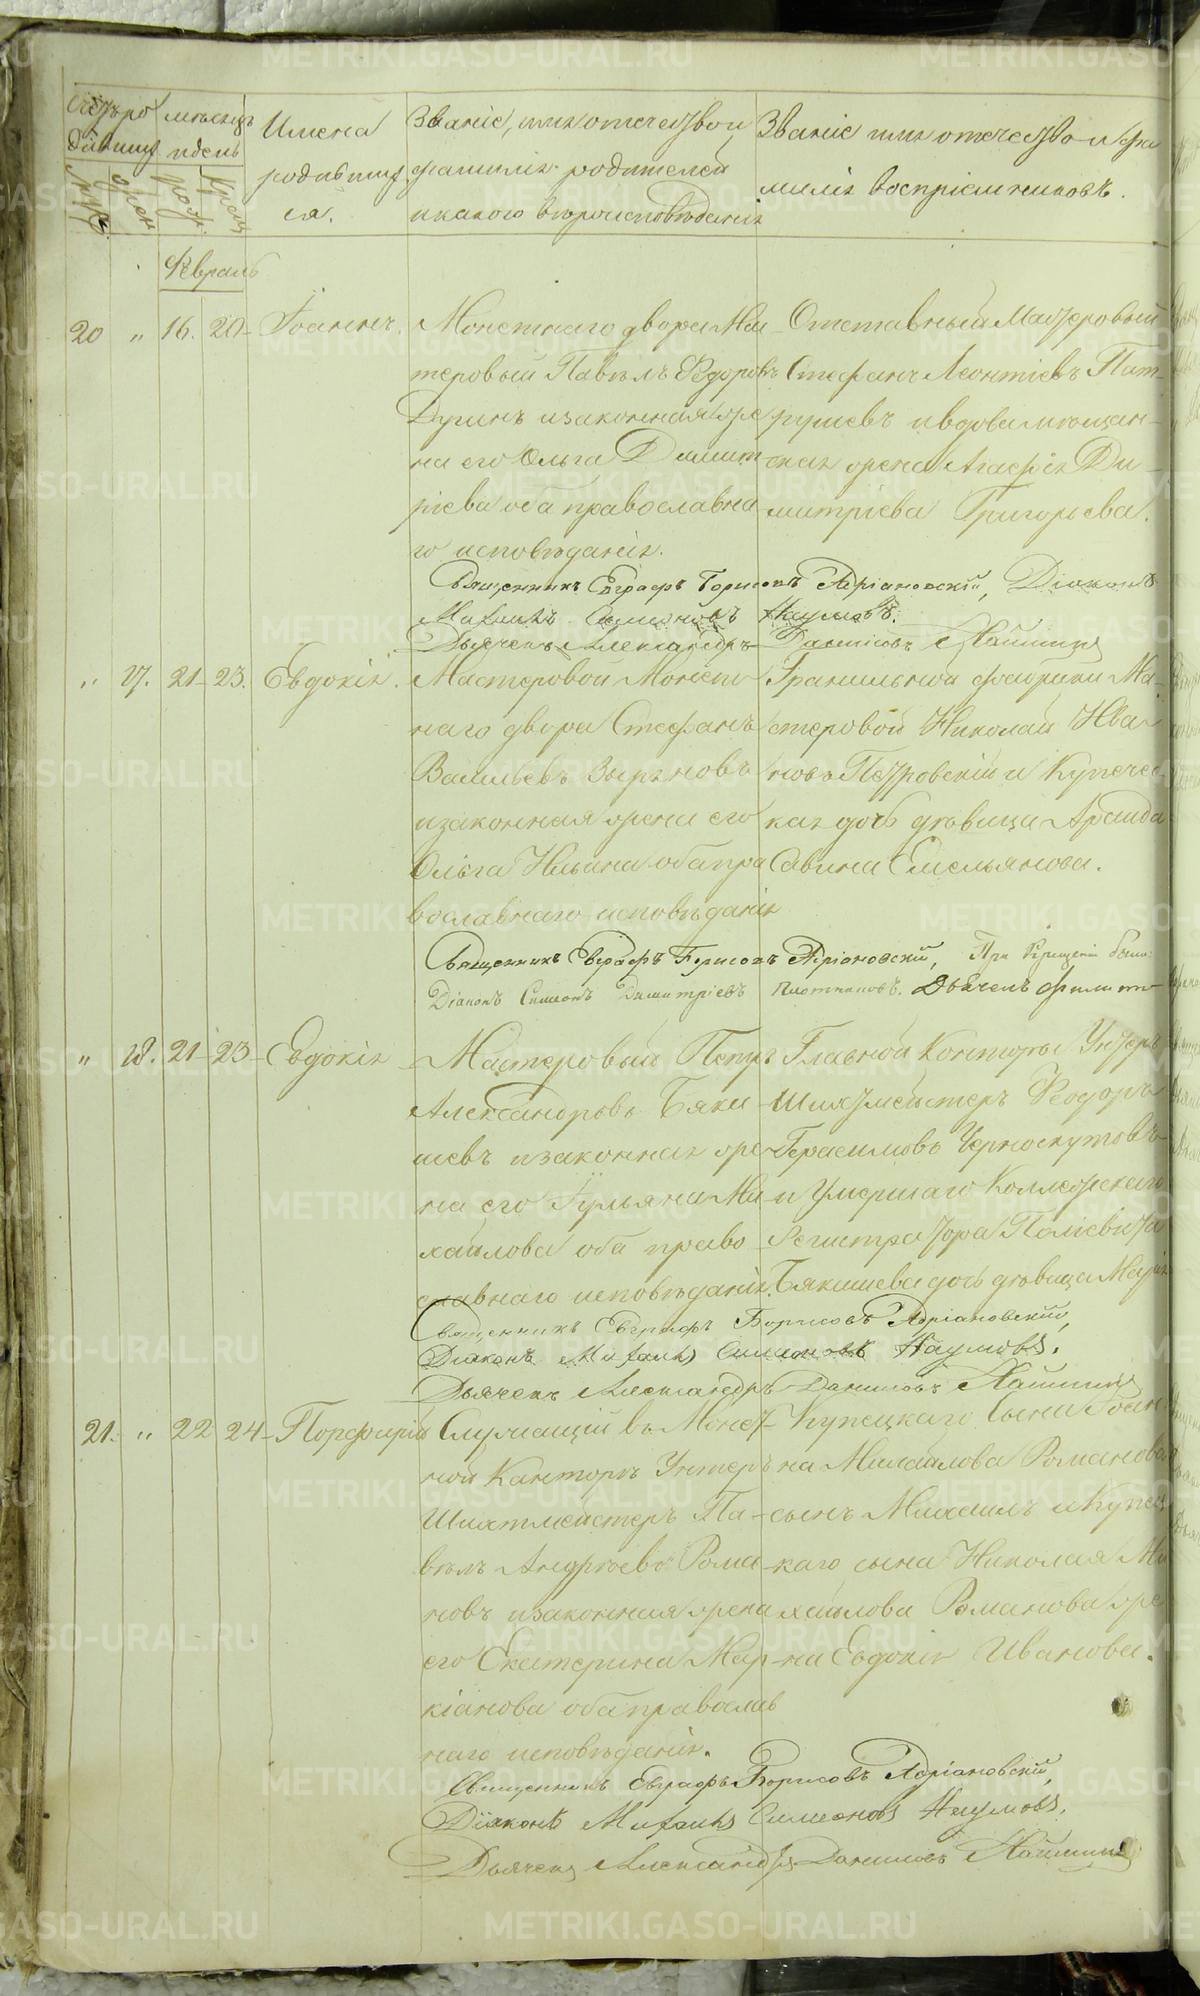 METRIKI.GASO-URAL.RU
Счетъ ро
дивших
мѣсяцъ
и день
Имена
родивших
ся.
Званіе, имя отчество и
фамилія родителей
и какого вѣроисповѣданія
Званіе имя отчество и фа
милія воспріемниковъ.
Февраль
20 " 16. 20 Іоаннъ.
Монетнаго двора Мас
теровый Павелъ Ѳедоровъ
и законная же
на его Ольга Димит
ріева оба православна
го исповѣданія.
Отставный Мастеровый
Стефанъ Леонтіевъ Пат
рушевъ и вдова мѣщан
ская жена Агафія Ди
митріева Григорьева.
Священникъ Евграфъ Борисовъ Адріановскій, Діаконъ
Михаилъ Симеоновъ Наумовъ.
Дьячекъ Александръ Даниловъ
" 17. 21 23. Евдокія.
Мастеровой Монет
наго двора Стефанъ
Васильевъ Зыряновъ
и законная жена его
Ольга Ильина оба пра
вославнаго исповѣданія
Гранильной фабрики Ма
стеровой Николай Ива
новъ Петровскій и Купечес
кая дочь дѣвица
Савина Емельянова.
Священникъ Евграфъ Борисовъ Адріановскій, При Крещеніи были:
Діаконъ Симеонъ Димитріевъ Плотниковъ. Дьячекъ
" 18. 21 23 Евдокія
Мастеровый Петръ
Александровъ Бяки
шевъ и законная же
на его Іульяна Ми
хайлова оба право
славнаго исповѣданія.
Главной Конторы Унтеръ
Шихтмейстеръ Ѳеодоръ
Герасимовъ Черноскутовъ
и умершаго Коллежскаго
Регистратора
Бякишева дочь дѣвица Марія
Священникъ Евграфъ Борисовъ Адріановскій,
Діаконъ Михаилъ Симеоновъ Наумовъ.
Дьячекъ Александръ Даниловъ
21. " 22 24 Порфирій
Служащій въ Монет
ной Канторѣ Унтеръ
Шихтмейстеръ Па
велъ Андреевъ Рома
новъ и законная жена
его Екатерина Мар
кіанова оба православ
наго исповѣданія.
Купецкаго сына Іоан
на Михайлова Романова
сынъ Михаилъ и Купец
каго сына Николая Ми
хайлова Романова же
на Евдокія Иванова.
Священникъ Евграфъ Борисовъ Адріановскій,
Діаконъ Михаилъ Симеоновъ Наумовъ,
Дьячекъ Александръ Даниловъ